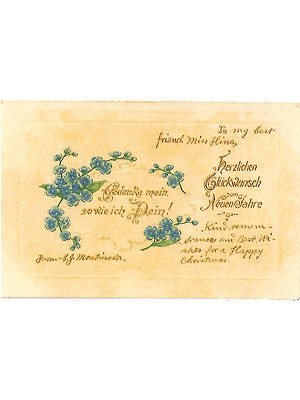 To my best
friend Miss Hing,
Herzlichen
Glückwunsch
zum
Neuen Jahre
Gedenke mein,
so wie ich Dein!
Kind remem-
drance and Best Wi-
shes for a Happy
Christmas.
From